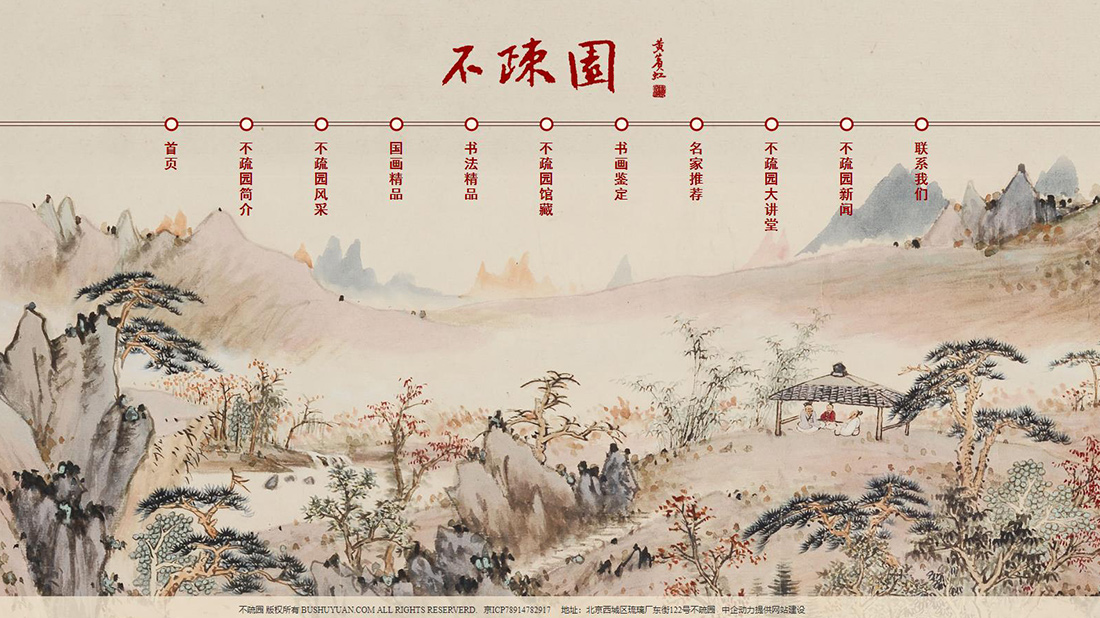 不疎園
黄賓虹
首页
不疏园简介
不疏园风采
国画精品
书法精品
不疏园馆藏
书画鉴定
名家推荐
不疏园大讲堂
不疏园新闻
联系我们
不疏园 版权所有 BUSHUYUAN.COM ALL RIGHTS RESERVERD. 京ICP78914782917 地址：北京西城区琉璃厂东街122号不疏园 中企动力提供网站建设